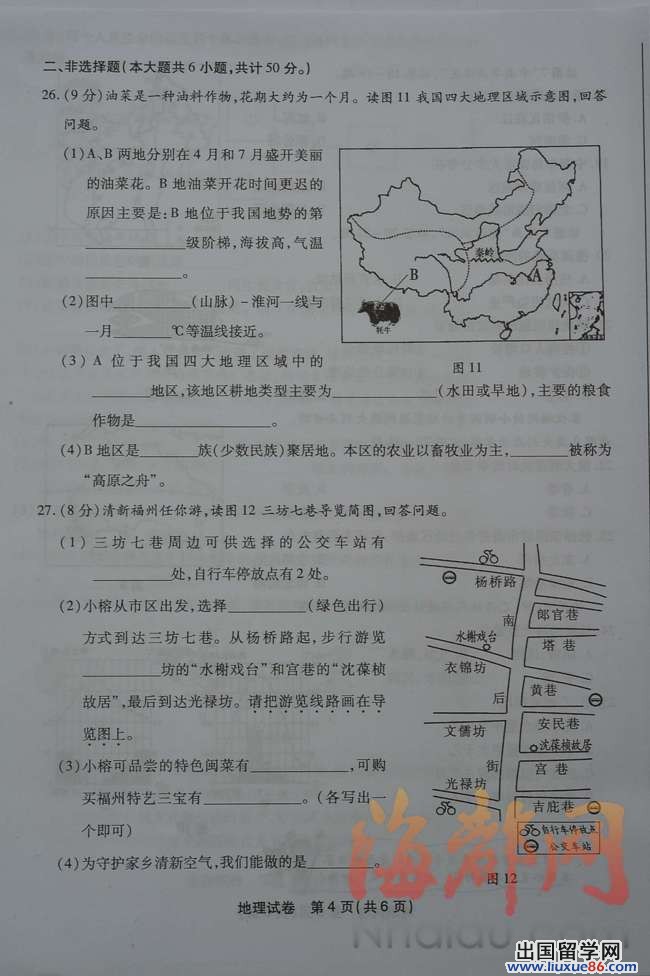 二、非选择题(本大题共6小题,共计50分。)
26.(9分)油菜是一种油料作物,花期大约为一个月。读图11我国四大地理区域示意图,回答
问题。
(1)A、B两地分别在4月和7月盛开美丽
的油菜花。B地油菜开花时间更迟的
原因主要是:B地位于我国地势的第
________级阶梯,海拔高,气温
________。
(2)图中________(山脉)-淮河一线与
一月________℃等温线接近。
(3)A位于我国四大地理区域中的
________地区,该地区耕地类型主要为________(水田或旱地),主要的粮食
作物是________。
(4)B地区是________族(少数民族)聚居地。本区的农业以畜牧业为主,________被称为
“高原之舟”。
秦岭
A
B
牦牛
图11
27.(8分)清新福州任你游,读图12三坊七巷导览简图,回答问题。
(1)三坊七巷周边可供选择的公交车站有
________处,自行车停放点有2处。
(2)小榕从市区出发,选择________(绿色出行)
方式到达三坊七巷。从杨桥路起,步行游览
________坊的“水榭戏台”和宫巷的“沈葆桢
故居”,最后到达光禄坊。请把游览线路画在导
览图上。
(3)小榕可品尝的特色闽菜有________,可购
买福州特艺三宝有________。(各写出一
个即可)
(4)为守护家乡清新空气,我们能做的是________。
杨桥路
南
郎官巷
水榭戏台
塔巷
衣锦坊
后
黄巷
文儒坊
安民巷
沈葆桢故居
街
宫巷
光禄坊
吉庇巷
自行车停放点
公交车站
图12
地理试卷 第4页(共6页)
海都网
Nhaidu.com
出国留学网
www.liuxue86.com